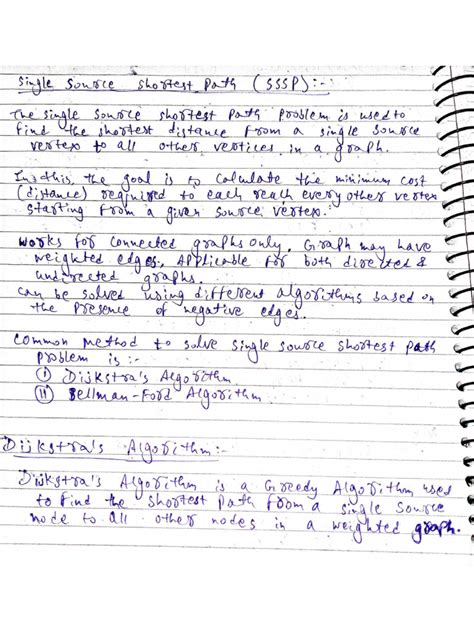 Single Source Shortest Path (SSSP):-
The single source shortest path problem is used to
find the shortest distance from a single source
vertex to all other vertices in a graph.
In this, the goal is to calculate the minimum cost
(distance) required to each reach every other vertex
starting from a given source vertex.
Works for connected graphs only. Graph may have
weighted edges. Applicable for both directed &
undirected graphs.
can be solved using different algorithms based on
the presence of negative edges.
Common method to solve single source shortest path
problem is :-
(i) Dijkstra's Algorithm
(ii) Bellman-Ford Algorithm.
Dijkstra's Algorithm:-
Dijkstra's Algorithm is a Greedy Algorithm used
to find the shortest path from a single source
node to all other nodes in a weighted graph.